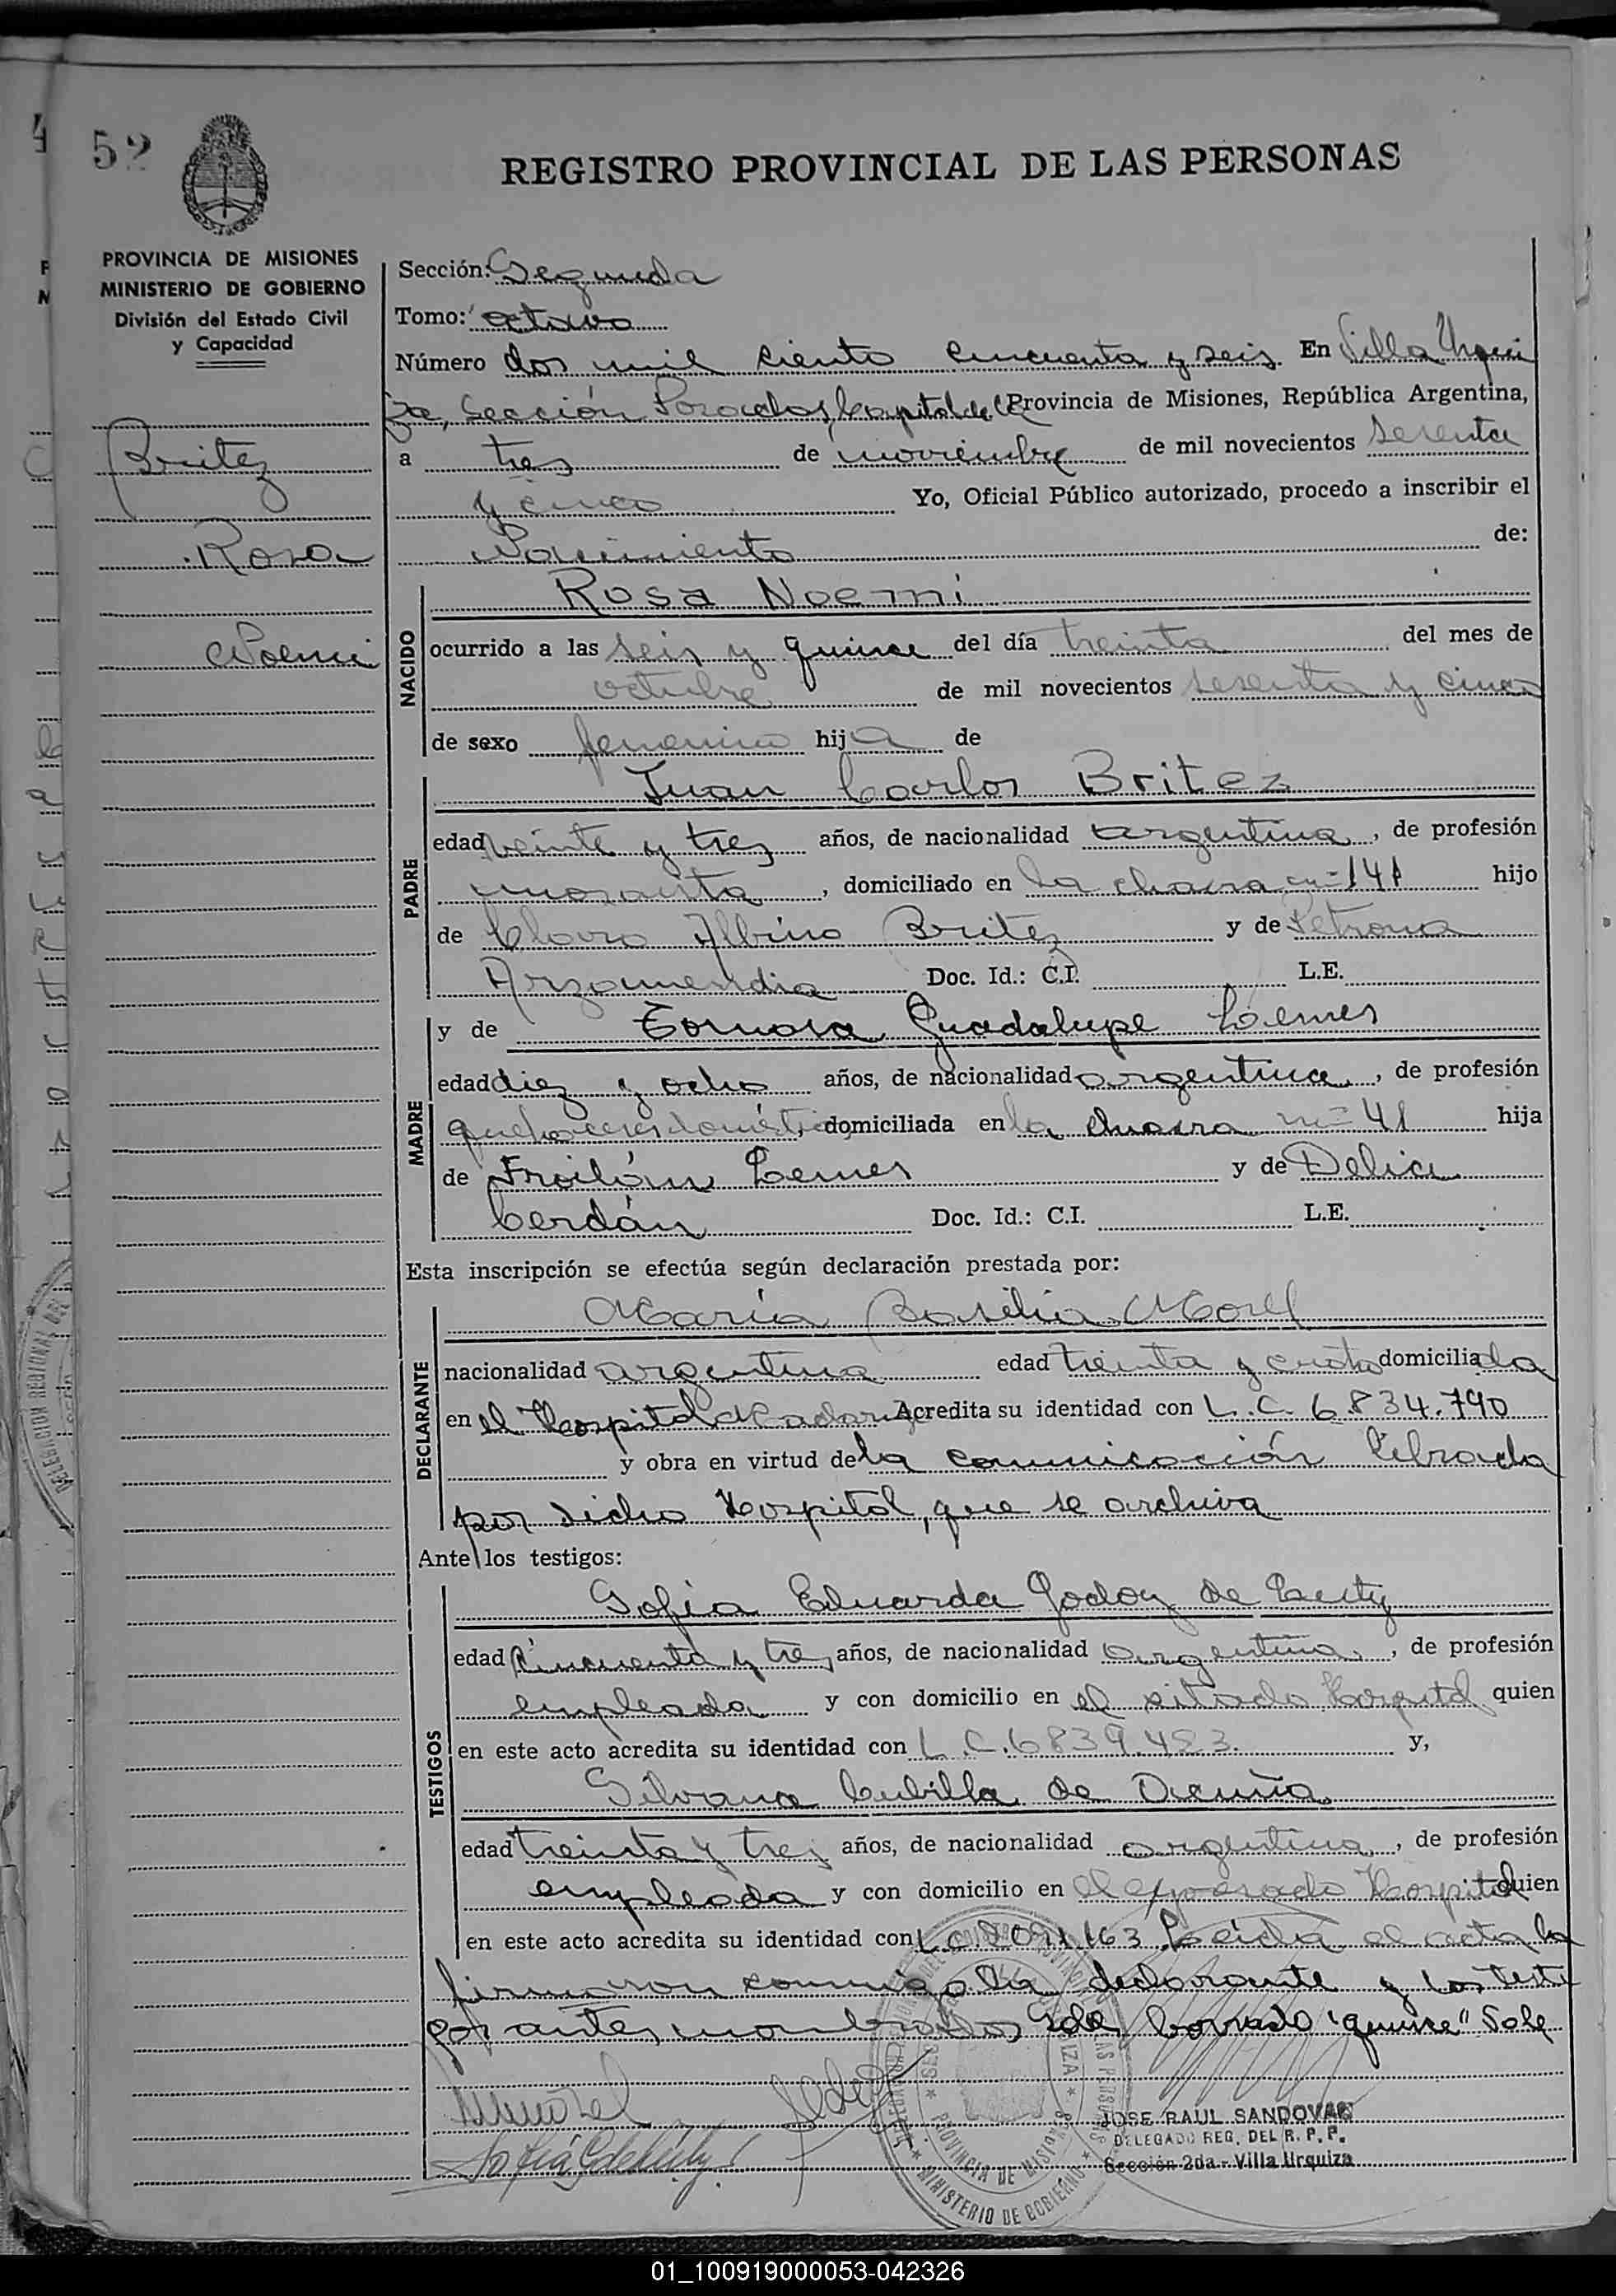 52
REGISTRO PROVINCIAL DE LAS PERSONAS
PROVINCIA DE MISIONES
MINISTERIO DE GOBIERNO
División del Estado Civil
y Capacidad
Britez
Rosa
Noemi
Sección: Segunda
Tomo: octavo
Número dos mil ciento cincuenta y seis. En Villa Urqui
za, Sección Posadas, Capital de la Provincia de Misiones, República Argentina,
a tres de noviembre de mil novecientos sesenta
y cinco Yo, Oficial Público autorizado, procedo a inscribir el
Nacimiento de:
NACIDO
Rosa Noemi
ocurrido a las seis y quince del día treinta del mes de
octubre de mil novecientos sesenta y cinco
de sexo femenino hija de
PADRE
Juan Carlos Britez
edad veinte y tres años, de nacionalidad argentina, de profesión
mosaista, domiciliado en la chacra nº 141 hijo
de Albino Britez y de Petrona
Arzamendia Doc. Id.: C.I. L.E.
MADRE
y de Guadalupe Lemes
edad diez y ocho años, de nacionalidad argentina, de profesión
quehaceres domésticos, domiciliada en la chacra nº 41 hija
de Froilán Lemes y de Delia
Cerdán Doc. Id.: C.I. L.E.
Esta inscripción se efectúa según declaración prestada por:
DECLARANTE
María Basilia Morel
nacionalidad argentina edad treinta y domiciliada
en el Hospital Madariaga Acredita su identidad con L.C. 6.834.790
y obra en virtud de la comunicación librada
por dicho Hospital, que se archiva
Ante los testigos:
TESTIGOS
Sofia Eduarda Godoy de
edad Cincuenta y tres años, de nacionalidad argentina, de profesión
empleada y con domicilio en el citado Hospital quien
en este acto acredita su identidad con L.C. 6839.453. y,
Silvana Cubilla de Acuña
edad treinta y tres años, de nacionalidad argentina, de profesión
empleada y con domicilio en el expresado Hospital quien
en este acto acredita su identidad con L.C. Leída el acta la
firmaron conmigo la declarante y los testi
gos antes nombrados borrado "quince" Vale
JOSE RAUL SANDOVAL
DELEGADO REG. DEL R. P. P.
Sección 2da - Villa Urquiza
PROVINCIA DE MISIONES
MINISTERIO DE GOBIERNO
DELEGACION REGIONAL DEL
01_100919000053-042326